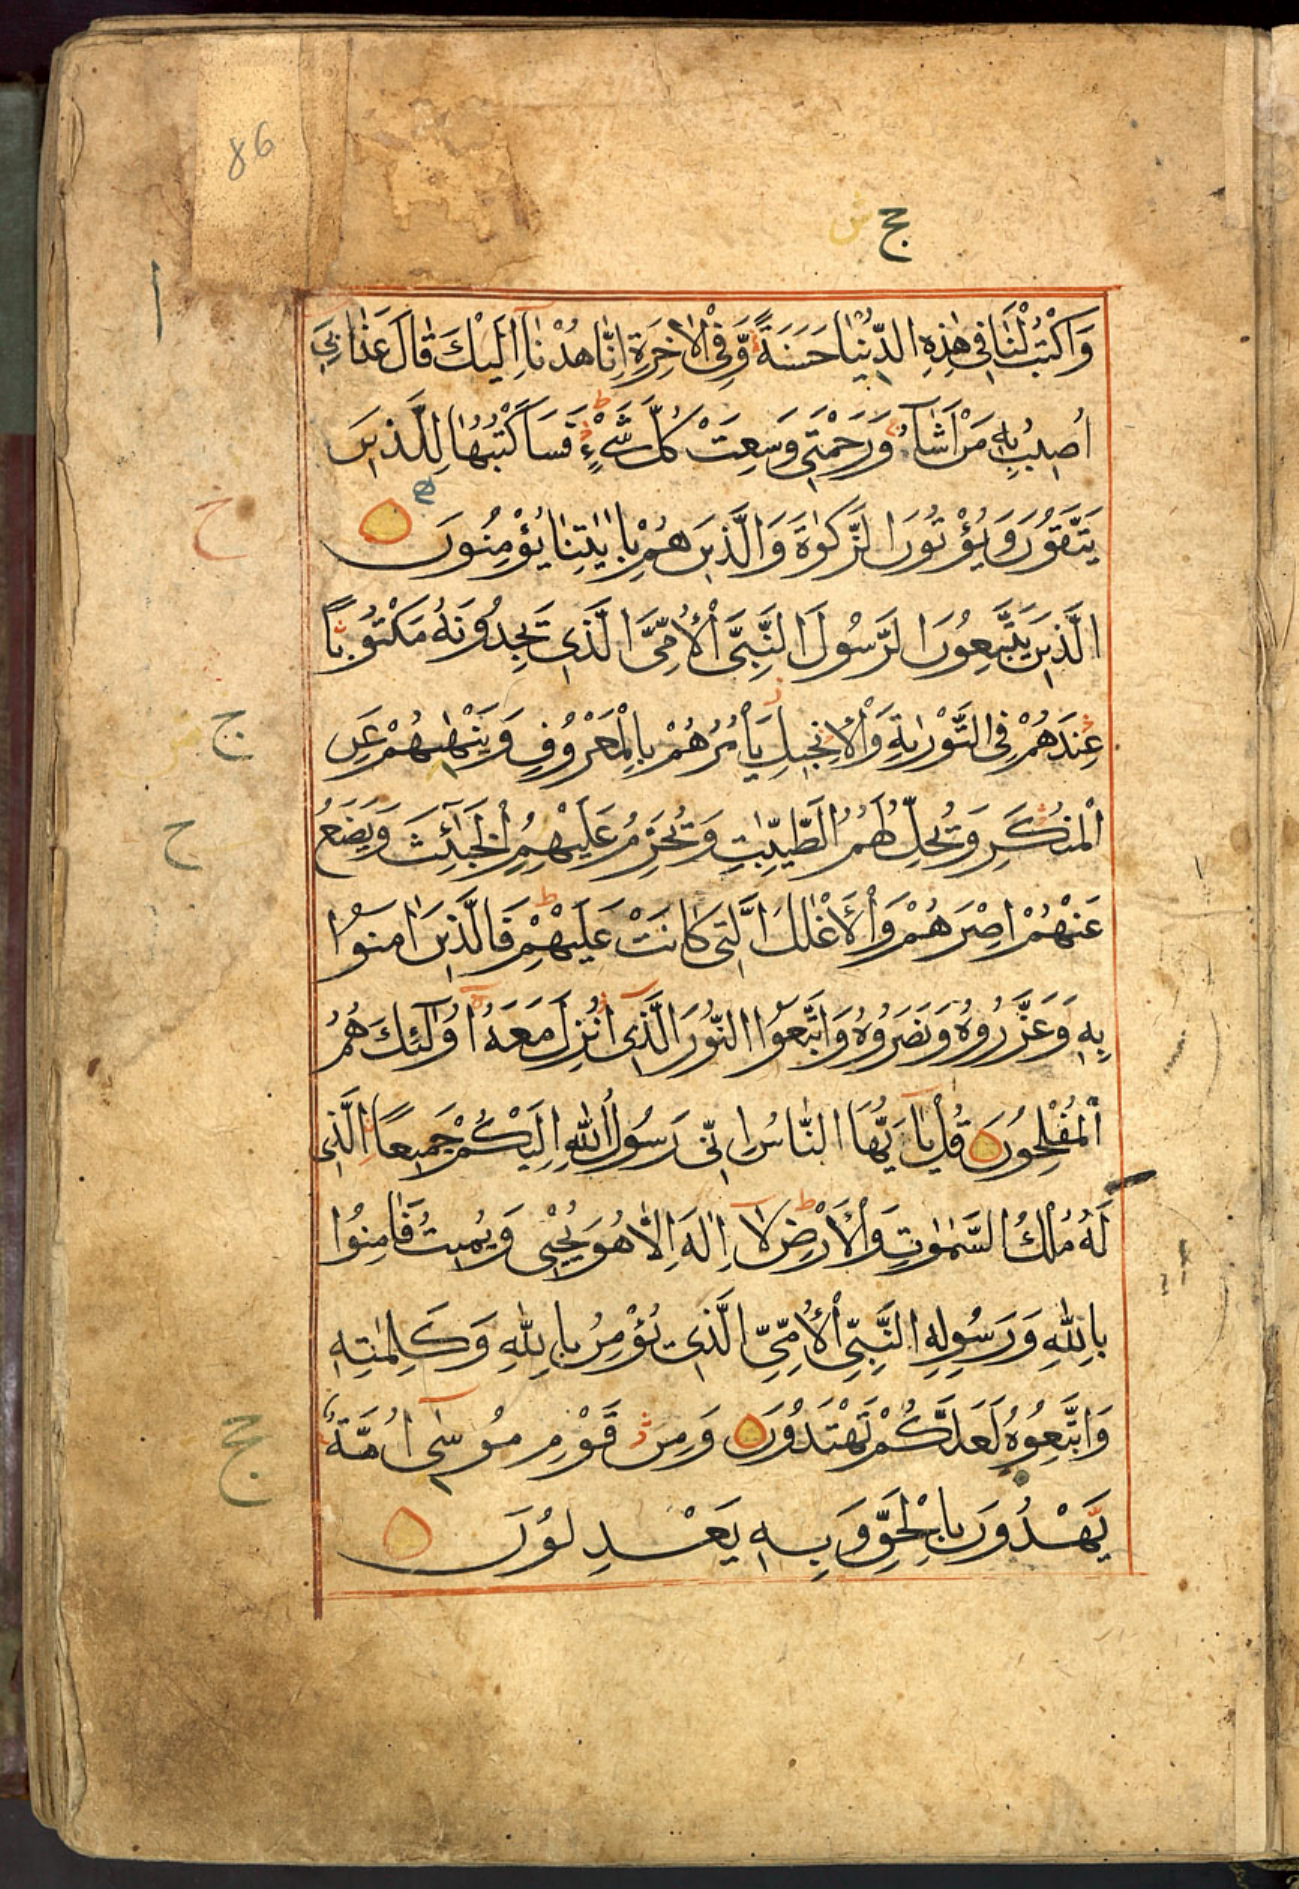 86
ج ش
ا
وَاكْتُبْ لَنَا فِي هٰذِهِ الدُّنْيَا حَسَنَةً وَّفِي الْاٰخِرَةِ اِنَّا هُدْنَآ اِلَيْكَ قَالَ عَذَابِيٓ
اُصِيْبُ بِهٖ مَنْ اَشَآءُ وَرَحْمَتِيْ وَسِعَتْ كُلَّ شَيْءٍ فَسَاَكْتُبُهَا لِلَّذِيْنَ
يَتَّقُوْنَ وَيُؤْتُوْنَ الزَّكٰوةَ وَالَّذِيْنَ هُمْ بِاٰيٰتِنَا يُؤْمِنُوْنَ
ح
الَّذِيْنَ يَتَّبِعُوْنَ الرَّسُوْلَ النَّبِيَّ الْاُمِّيَّ الَّذِيْ يَجِدُوْنَهٗ مَكْتُوْبًا
عِنْدَهُمْ فِي التَّوْرٰىةِ وَالْاِنْجِيْلِ يَاْمُرُهُمْ بِالْمَعْرُوْفِ وَيَنْهٰىهُمْ عَنِ
ج
الْمُنْكَرِ وَيُحِلُّ لَهُمُ الطَّيِّبٰتِ وَيُحَرِّمُ عَلَيْهِمُ الْخَبٰٓئِثَ وَيَضَعُ
ح
عَنْهُمْ اِصْرَهُمْ وَالْاَغْلٰلَ الَّتِيْ كَانَتْ عَلَيْهِمْ فَالَّذِيْنَ اٰمَنُوْا
بِهٖ وَعَزَّرُوْهُ وَنَصَرُوْهُ وَاتَّبَعُوا النُّوْرَ الَّذِيْٓ اُنْزِلَ مَعَهٗٓ اُولٰٓئِكَ هُمُ
الْمُفْلِحُوْنَ قُلْ يٰٓاَيُّهَا النَّاسُ اِنِّيْ رَسُوْلُ اللّٰهِ اِلَيْكُمْ جَمِيْعًا الَّذِيْ
لَهٗ مُلْكُ السَّمٰوٰتِ وَالْاَرْضِ لَآ اِلٰهَ اِلَّا هُوَ يُحْيٖ وَيُمِيْتُ فَاٰمِنُوْا
بِاللّٰهِ وَرَسُوْلِهِ النَّبِيِّ الْاُمِّيِّ الَّذِيْ يُؤْمِنُ بِاللّٰهِ وَكَلِمٰتِهٖ
وَاتَّبِعُوْهُ لَعَلَّكُمْ تَهْتَدُوْنَ وَمِنْ قَوْمِ مُوْسٰٓى اُمَّةٌ
يَّهْدُوْنَ بِالْحَقِّ وَبِهٖ يَعْدِلُوْنَ